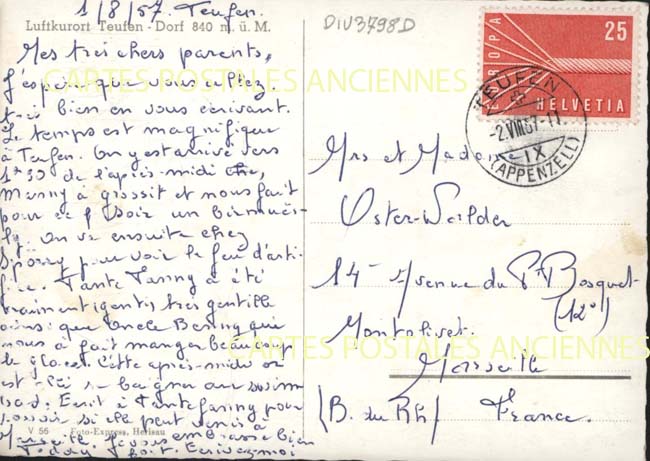 1/8/57. Teufen.
Luftkurort Teufen - Dorf 840 m. ü. M.
DIV3798D
Mes très chers parents,
J'espère que vous allez
très bien en vous écrivant.
Le temps est magnifique
à Teufen. On y est arrivé vers
1h30 de l'après-midi
Manny a grossit et nous fait
pour ce soir un
On va ensuite chez
Sporry pour voir le feu d'arti-
fice. Tante Fanny a été
très gentille
ainsi que Oncle qui
nous a fait manger beaucoup
de glaces. Cette après-midi on
est allé se baigner au swimm
bad. Ecrit à Tante Fanny pour
savoir si elle peut venir à
Marseille. Je vous embrasse bien
Teddy fort. Ecrivez moi
V 56 Foto-Express, Herisau
EUROPA
25
HELVETIA
TEUFEN
-2.VIII.57-11
IX
(APPENZELL)
Mrs et Madame
Oster-Wailder
14 Avenue du Pt Bosquet
(12e)
Montolivet.
Marseille
(B. du Rh) France.
CARTES POSTALES ANCIENNES
CARTES POSTALES ANCIENNES